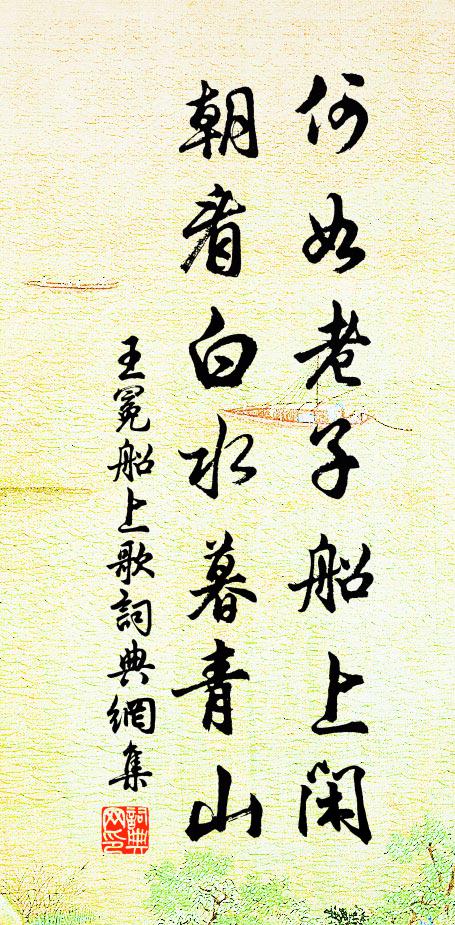 何如老子船上閑
朝看白水暮青山
王冕船上歌詞典網集
詞典
网印